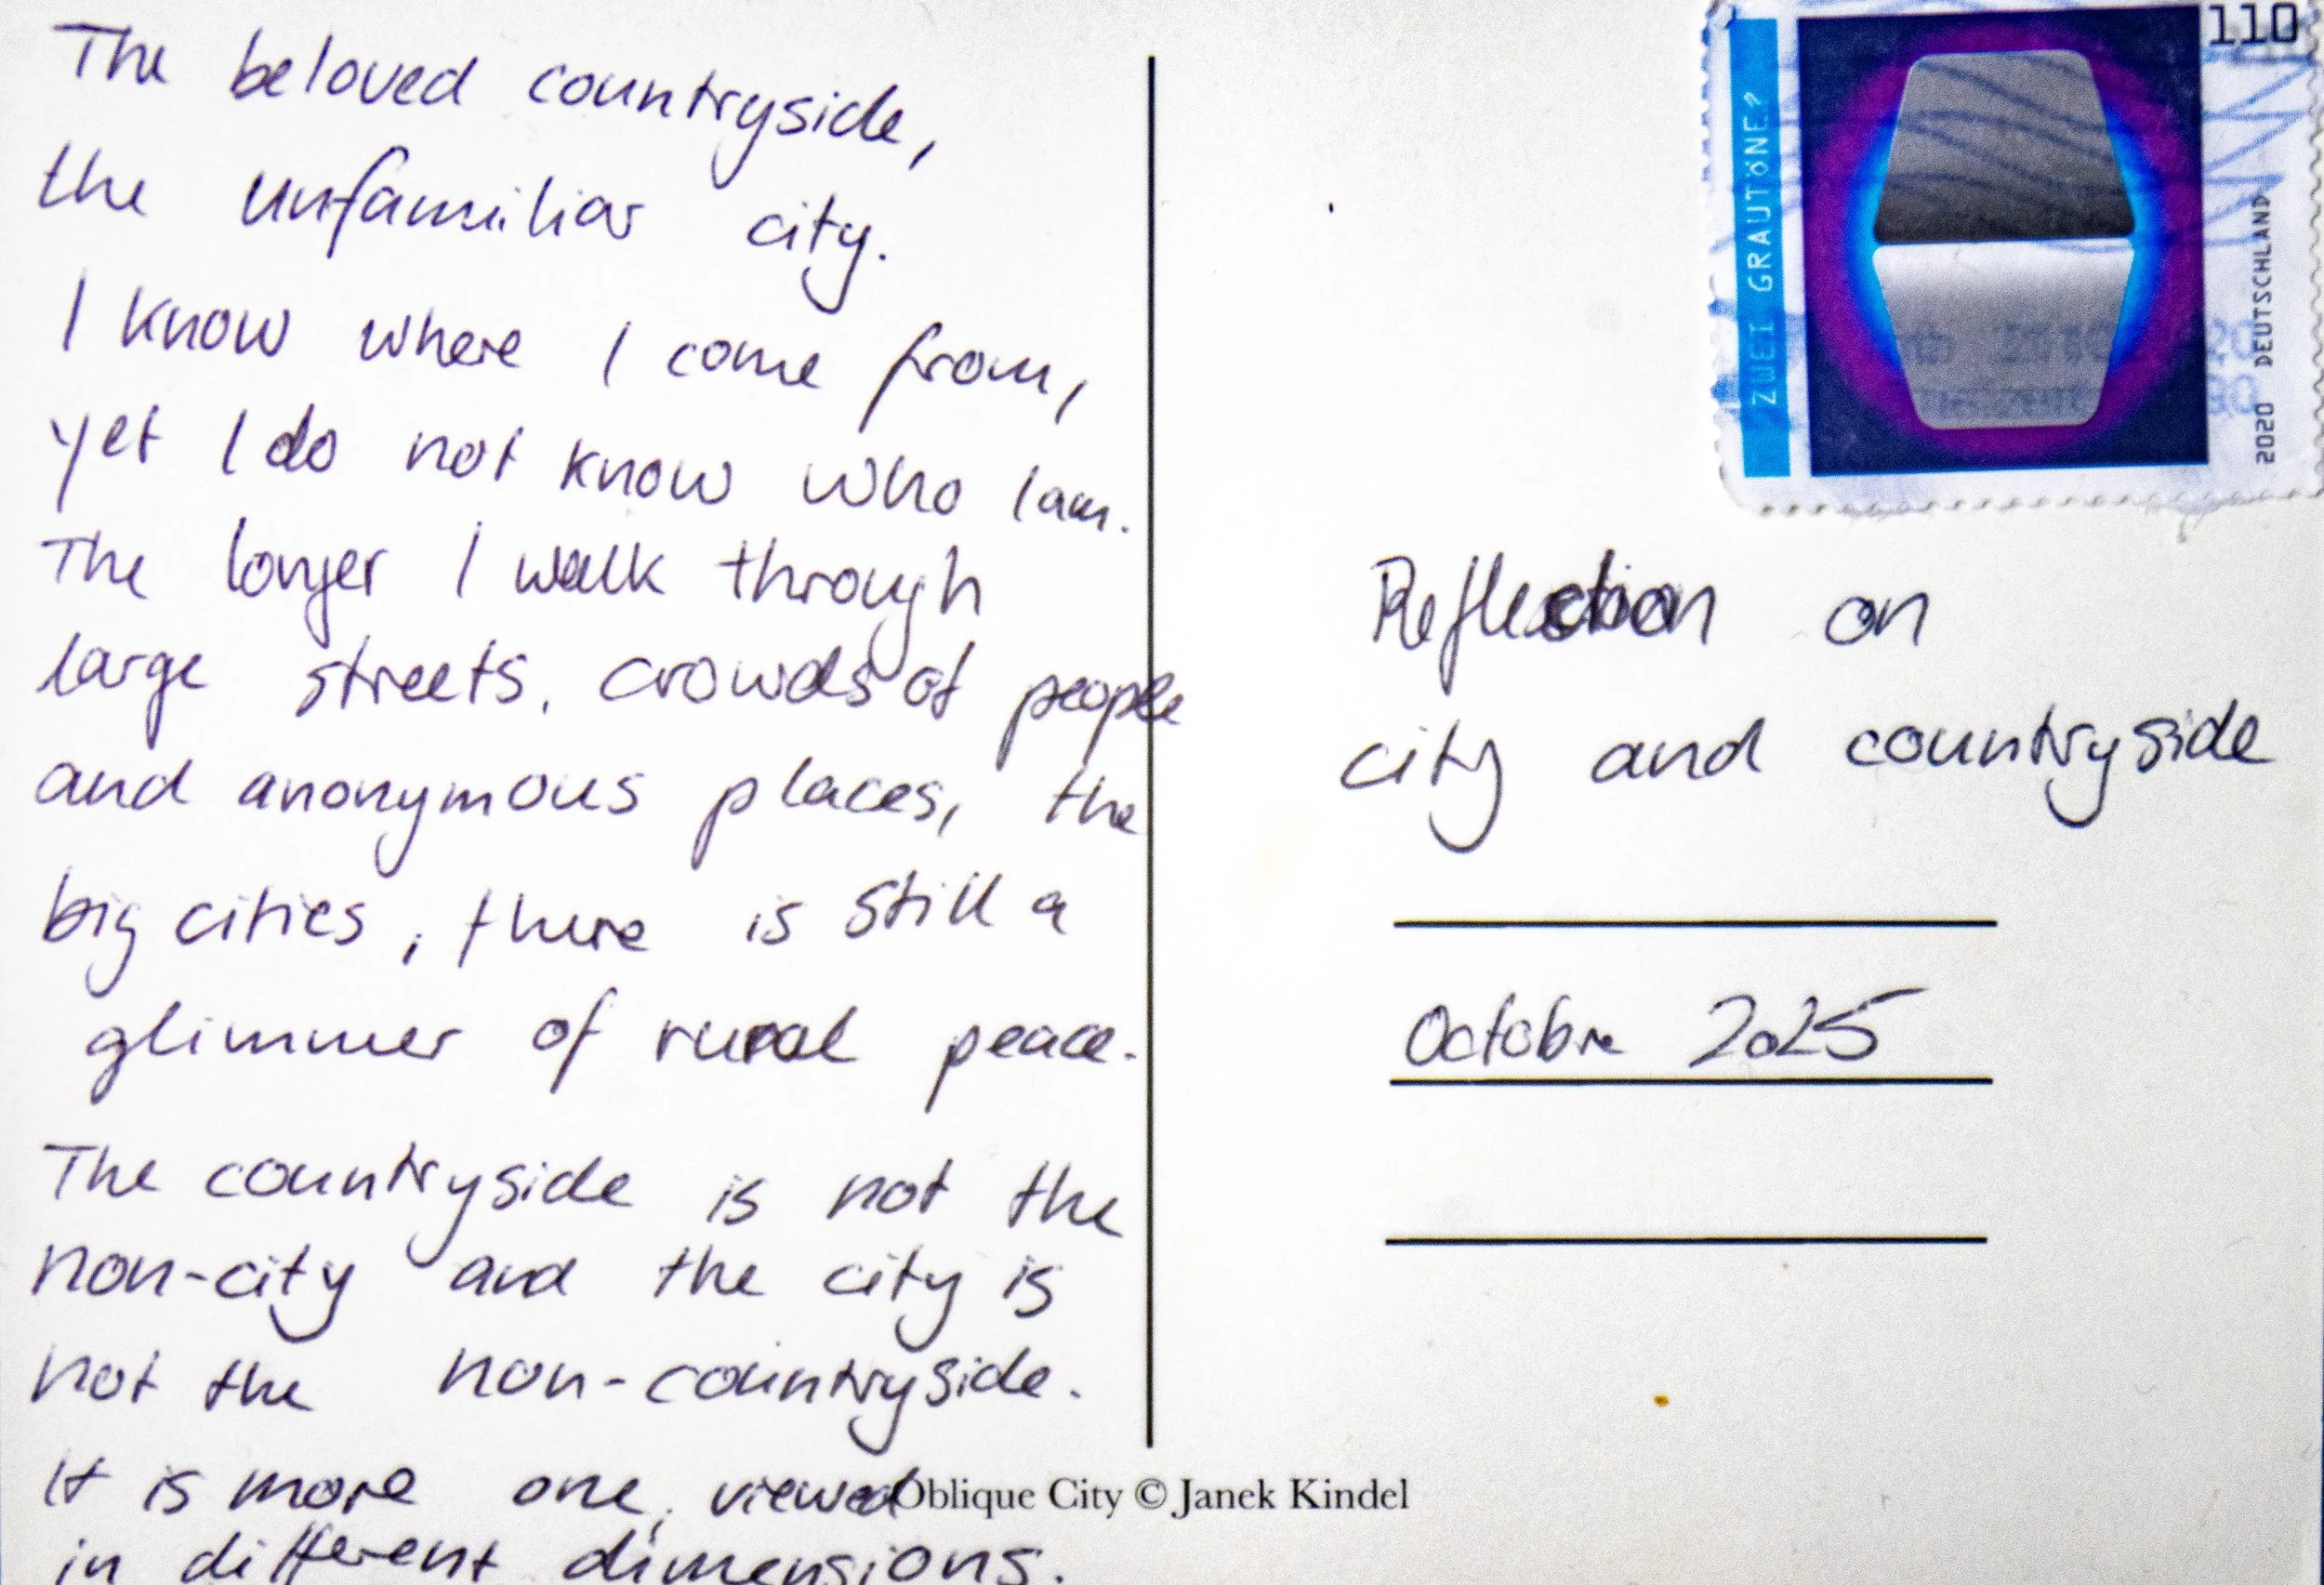 The beloved countryside,
the unfamiliar city.
I know where I come from,
yet I do not know who I am.
The longer I walk through
large streets, crowds of people
and anonymous places, the
big cities, there is still a
glimmer of rural peace.
The countryside is not the
non-city and the city is
not the non-countryside.
It is more one, viewed
in different dimensions.
110
ZWEI GRAUTÖNE?
2020 DEUTSCHLAND
Reflection on
city and countryside
Octobre 2025
Oblique City © Janek Kindel